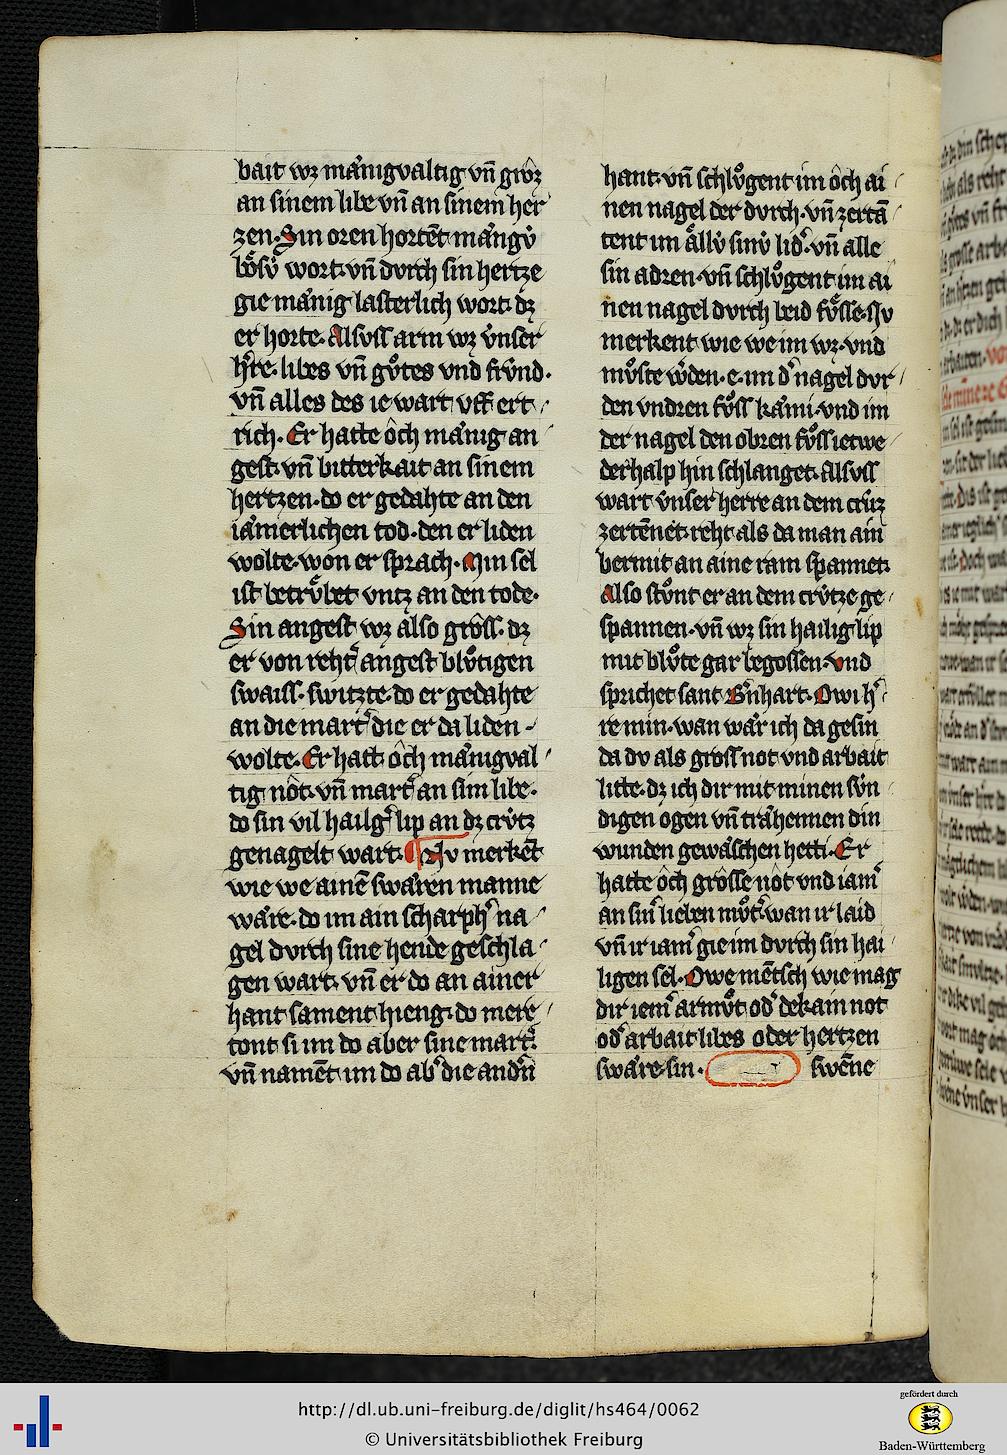 bait wz mänigvaltig vn̄ groz
an sinem libe vn̄ an sinem her
zen. Sin oren hortēt mängv̍
bȯ̈sv̍ wort. vn̄ dvrch sin hertze
gie mänig lasterlich wort. dz
er horte. Alsvss arm wz v̍nser
h͛re. libes vn̄ gv̊tes vnd frv̍nd.
vn̄ alles des ie wart vff ert
rich. Er hatte ôch mänig an
gest. vn̄ bitterkait an sinem
hertzen. do er gedahte an den
iämerlichen tod. den er liden
wolte. won er sprach. Min sel
ist betrv̊bet vntz an den tode.
Sin angest wz also gross. dz
er von reht͛ angest blv̊tigen
swaiss. switzte. do er gedahte
an die mart͛ die er da liden
wolte. Er hatt ôch mänigval
tig nôt. vn̄ mart͛ an sim libe.
do sin vil hailg͛ lip an dz crv̍tz
genagelt wart. Nv merkēt
wie we ainē swären manne
wäre. do im ain scharph͛ na
gel dvrch sine hende geschla
gen wart. vn̄ er do an ainer
hant sament hieng. do mere
tont si im do aber sine mart͛.
vn̄ namēt im do ab͛ die and͛n
hant. vn̄ schlv̊gent im ôch ai
nen nagel der dvrch. vn̄ zertā
tent im ällv̍ sinv̍ lid͛. vn̄ alle
sin adren. vn̄ schlv̊gent im ai
nen nagel dvrch beid fv̊sse. Nv
merkent wie we im wz. vnd
mv̊ste w͛den. e. im d͛ nagel dvr
den vndren fv̊ss käm. vnd im
der nagel den obren fv̊ss ietwe
derhalp hin schlanget. Alsvss
wart v̍nser herre an dem crv̍z
zertēnet. reht als da man ain
bermit an aine ram spannet.
Also stv̊nt er an dem crv̍tze ge
spannen. vn̄ wz sin hailig lip
mit blv̊te gar begossen. vnd
sprichet sant B͛nhart. Owi h͛
re min. wan wär ich da gesin
da dv als gross not vnd arbait
litte. dz ich dir mit minen sv̍n
digen ogen vn̄ trähennen din
wunden gewäschen hetti. Er
hatte ôch grôsse nôt vnd iam͛
an sin͛ lieben mv̊t͛. wan ir laid
vn̄ ir iam͛ gie im dvrch sin hai
ligen sel. Owe mētsch wie mag
dir iem͛ armv̊t od͛ dekain not
od͛ arbait libes oder hertzen
swäre sin. swēne
http://dl.ub.uni-freiburg.de/diglit/hs464/0062
© Universitätsbibliothek Freiburg
gefördert durch
Baden-Württemberg